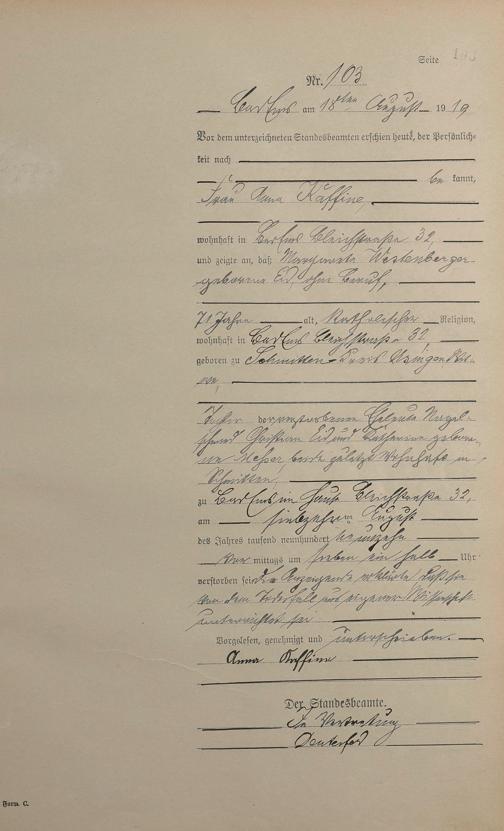 Seite 103
Nr. 103
Bad Ems am 18ten August 1919
Vor dem unterzeichneten Standesbeamten erschien heute, der Persönlich-
keit nach
be kannt,
Frau Anna Kaffine,
wohnhaft in Bad Ems Bleichstraße 32,
und zeigte an, daß Margareta Westenberger
geborene Eid, ohne Beruf,
71 Jahre alt, katholischer Religion,
wohnhaft in Bad Ems Bleichstraße 32
geboren zu Schmitten Kreis Usingen
Tochter der verstorbenen Eheleute Nagel-
schmied Christian Eid und Katharina gebore-
ne beide zuletzt wohnhaft in
Schmitten,
zu Bad Ems im Hause Bleichstraße 32,
am siebzehnten August
des Jahres tausend neunhundert neunzehn
Vor mittags um sieben ein halb Uhr
verstorben sei. Die Anzeigende erklärte, daß sie
von dem Todesfall aus eigener Wissenschaft
unterrichtet sei
Vorgelesen, genehmigt und unterschrieben.
Anna Kaffine
Der Standesbeamte.
In Vertretung
Form. C.